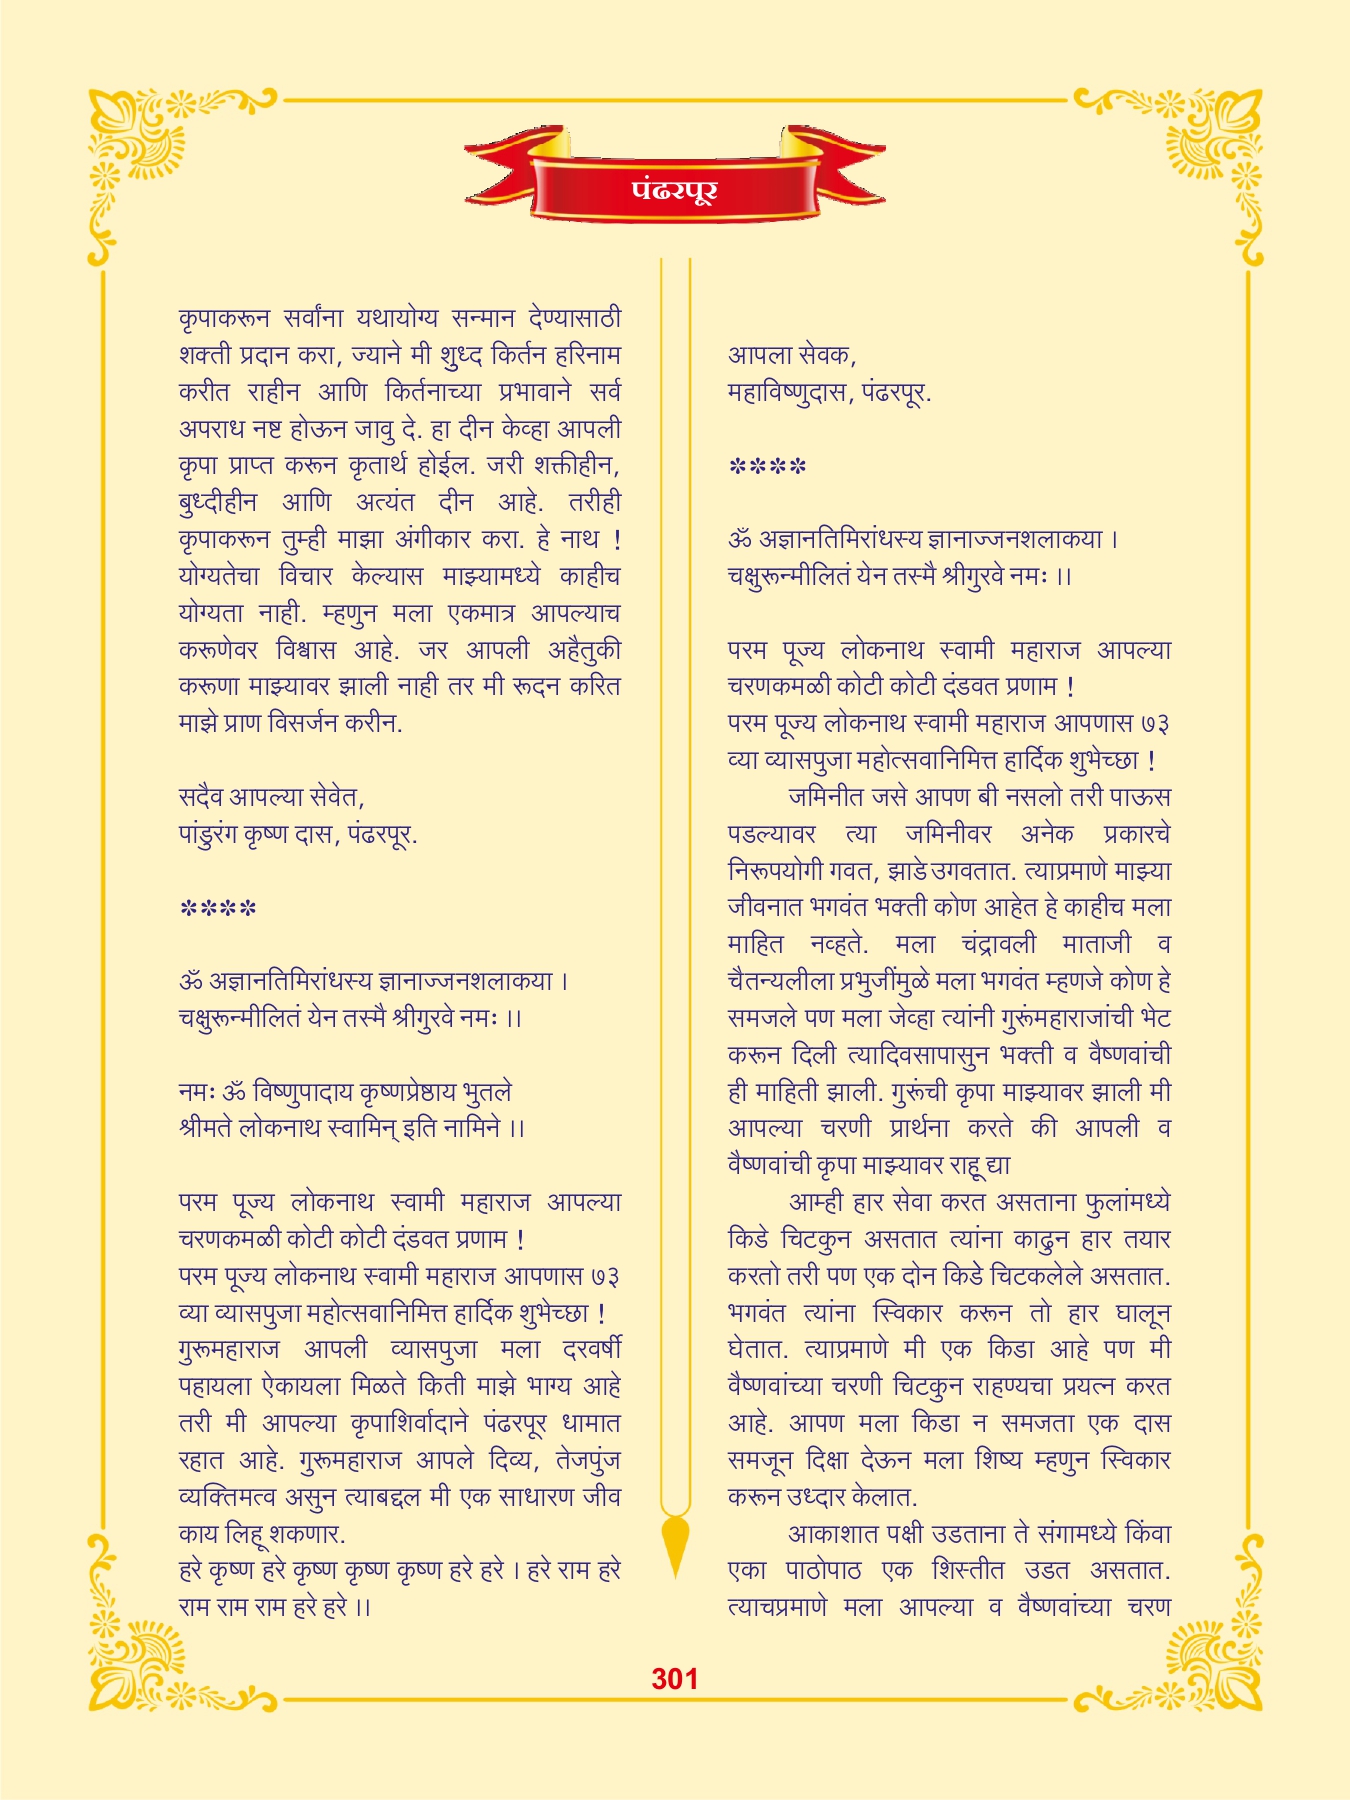 पंढरपूर
कृपाकरून सर्वांना यथायोग्य सन्मान देण्यासाठी
शक्ती प्रदान करा, ज्याने मी शुध्द किर्तन हरिनाम
करीत राहीन आणि किर्तनाच्या प्रभावाने सर्व
अपराध नष्ट होऊन जावु दे. हा दीन केव्हा आपली
कृपा प्राप्त करून कृतार्थ होईल. जरी शक्तीहीन,
बुध्दीहीन आणि अत्यंत दीन आहे. तरीही
कृपाकरून तुम्ही माझा अंगीकार करा. हे नाथ !
योग्यतेचा विचार केल्यास माझ्यामध्ये काहीच
योग्यता नाही. म्हणुन मला एकमात्र आपल्याच
करूणेवर विश्वास आहे. जर आपली अहैतुकी
करूणा माझ्यावर झाली नाही तर मी रूदन करित
माझे प्राण विसर्जन करीन.
सदैव आपल्या सेवेत,
पांडुरंग कृष्ण दास, पंढरपूर.
****
ॐ अज्ञानतिमिरांधस्य ज्ञानाज्जनशलाकया ।
चक्षुरून्मीलितं येन तस्मै श्रीगुरवे नमः ।।
नमः ॐ विष्णुपादाय कृष्णप्रेष्ठाय भुतले
श्रीमते लोकनाथ स्वामिन् इति नामिने ।।
परम पूज्य लोकनाथ स्वामी महाराज आपल्या
चरणकमळी कोटी कोटी दंडवत प्रणाम !
परम पूज्य लोकनाथ स्वामी महाराज आपणास ७३
व्या व्यासपुजा महोत्सवानिमित्त हार्दिक शुभेच्छा !
गुरूमहाराज आपली व्यासपुजा मला दरवर्षी
पहायला ऐकायला मिळते किती माझे भाग्य आहे
तरी मी आपल्या कृपाशिर्वादाने पंढरपूर धामात
रहात आहे. गुरूमहाराज आपले दिव्य, तेजपुंज
व्यक्तिमत्व असुन त्याबद्दल मी एक साधारण जीव
काय लिहू शकणार.
हरे कृष्ण हरे कृष्ण कृष्ण कृष्ण हरे हरे । हरे राम हरे
राम राम राम हरे हरे ।।
आपला सेवक,
महाविष्णुदास, पंढरपूर.
****
ॐ अज्ञानतिमिरांधस्य ज्ञानाज्जनशलाकया ।
चक्षुरून्मीलितं येन तस्मै श्रीगुरवे नमः ।।
परम पूज्य लोकनाथ स्वामी महाराज आपल्या
चरणकमळी कोटी कोटी दंडवत प्रणाम !
परम पूज्य लोकनाथ स्वामी महाराज आपणास ७३
व्या व्यासपुजा महोत्सवानिमित्त हार्दिक शुभेच्छा !
जमिनीत जसे आपण बी नसलो तरी पाऊस
पडल्यावर त्या जमिनीवर अनेक प्रकारचे
निरूपयोगी गवत, झाडे उगवतात. त्याप्रमाणे माझ्या
जीवनात भगवंत भक्ती कोण आहेत हे काहीच मला
माहित नव्हते. मला चंद्रावली माताजी व
चैतन्यलीला प्रभुजींमुळे मला भगवंत म्हणजे कोण हे
समजले पण मला जेव्हा त्यांनी गुरूंमहाराजांची भेट
करून दिली त्यादिवसापासुन भक्ती व वैष्णवांची
ही माहिती झाली. गुरूंची कृपा माझ्यावर झाली मी
आपल्या चरणी प्रार्थना करते की आपली व
वैष्णवांची कृपा माझ्यावर राहू द्या
आम्ही हार सेवा करत असताना फुलांमध्ये
किडे चिटकुन असतात त्यांना काढुन हार तयार
करतो तरी पण एक दोन किडे चिटकलेले असतात.
भगवंत त्यांना स्विकार करून तो हार घालून
घेतात. त्याप्रमाणे मी एक किडा आहे पण मी
वैष्णवांच्या चरणी चिटकुन राहण्यचा प्रयत्न करत
आहे. आपण मला किडा न समजता एक दास
समजून दिक्षा देऊन मला शिष्य म्हणुन स्विकार
करून उध्दार केलात.
आकाशात पक्षी उडताना ते संगामध्ये किंवा
एका पाठोपाठ एक शिस्तीत उडत असतात.
त्याचप्रमाणे मला आपल्या व वैष्णवांच्या चरण
301